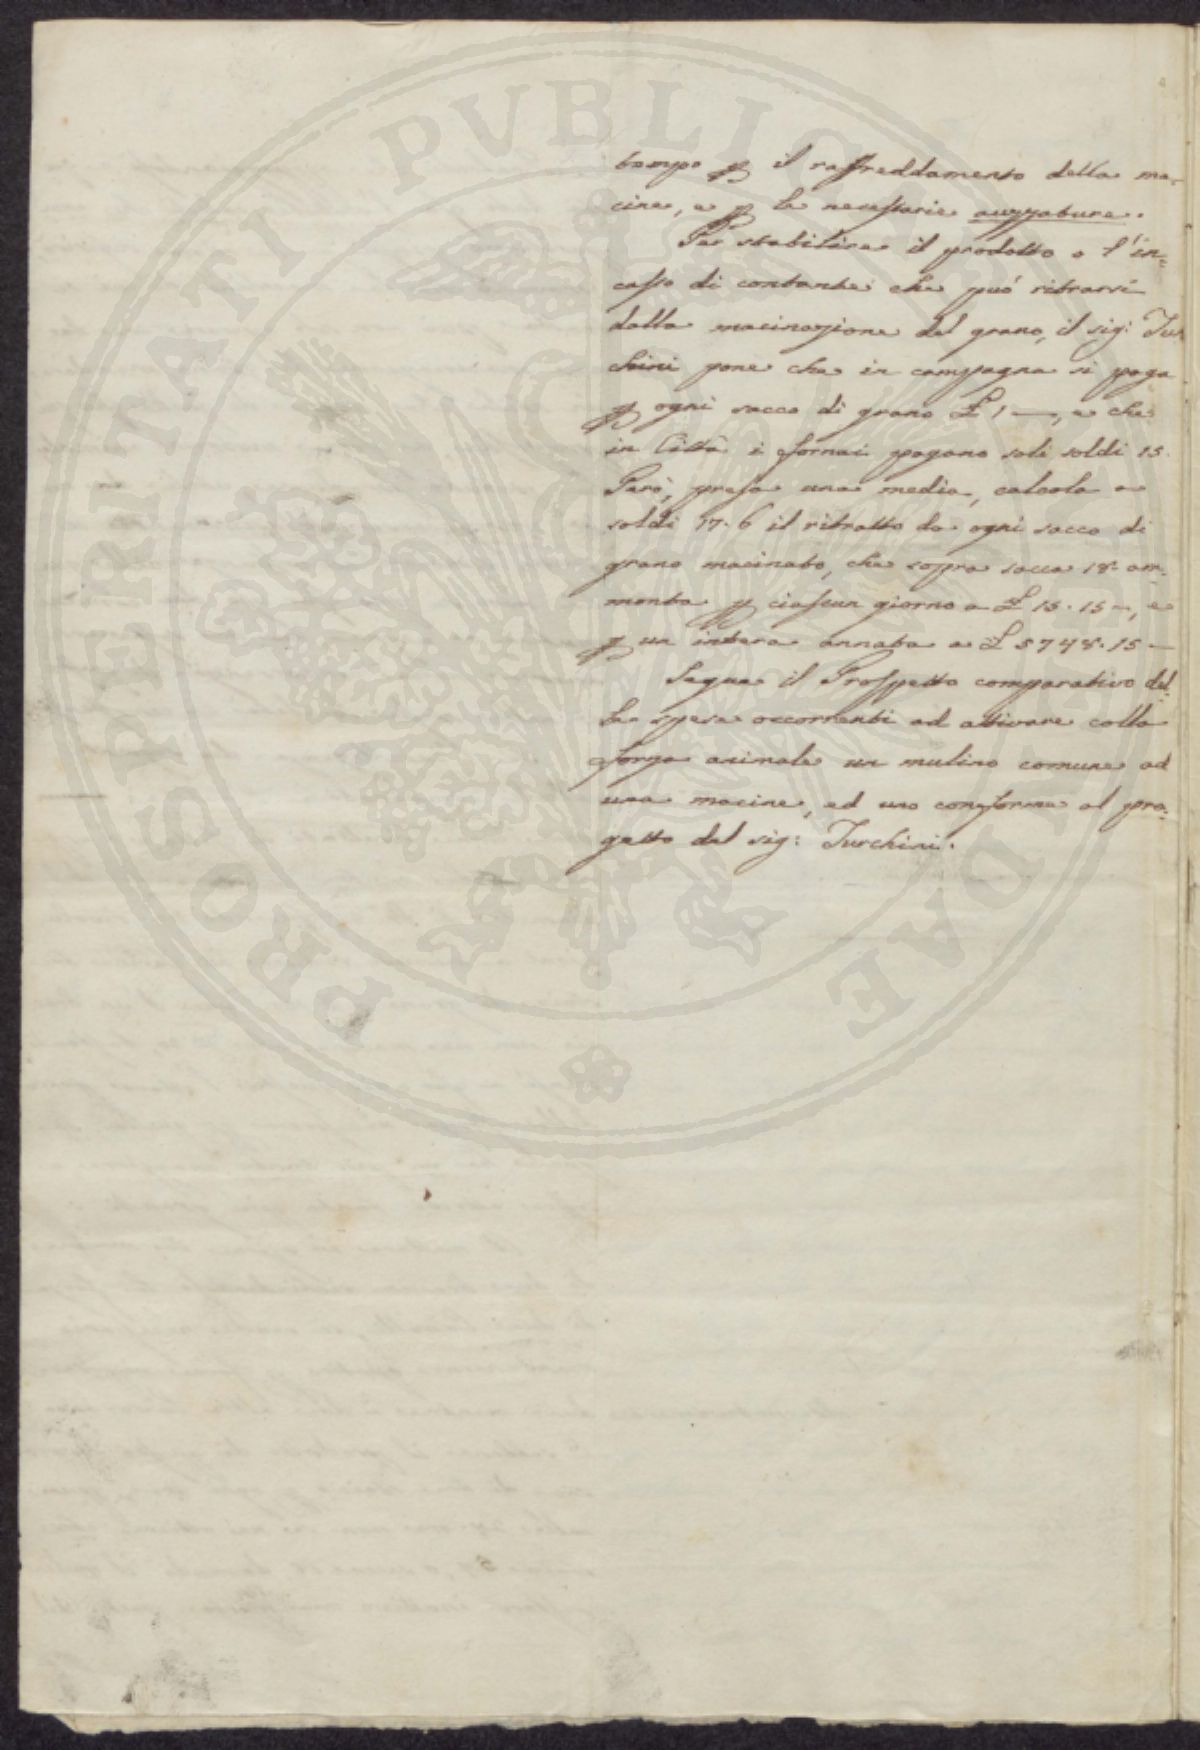 PROSPERITATI PUBLICAE AUGENDAE
tempo p il raffreddamento della ma-
cine, e p le necessarie auzzature.
Per stabilire il prodotto o l'in-
casso di contante che può ritrarsi
dalla macinazione del grano, il sig: Tur
chini pone che in campagna si paga
p ogni sacco di grano £ 1 —, e che
in Città i fornai pagano soli soldi 15.
Però, presa una media, calcola a
soldi 17.6 il ritratto da ogni sacco di
grano macinato, che sopra sacca 18. am-
monta p ciascun giorno a £ 15.15 —, e
p un intera annata a £ 5748.15 —
Segue il Prospetto comparativo del-
le spese occorrenti ad attivare colla
forza animale un mulino comune ad
una macine, ed uno conforme al pro-
getto del sig: Turchini.